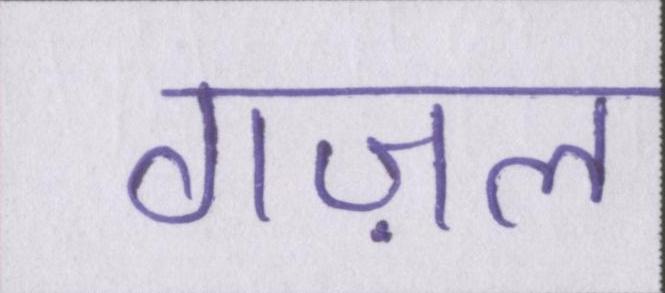 गज़ल